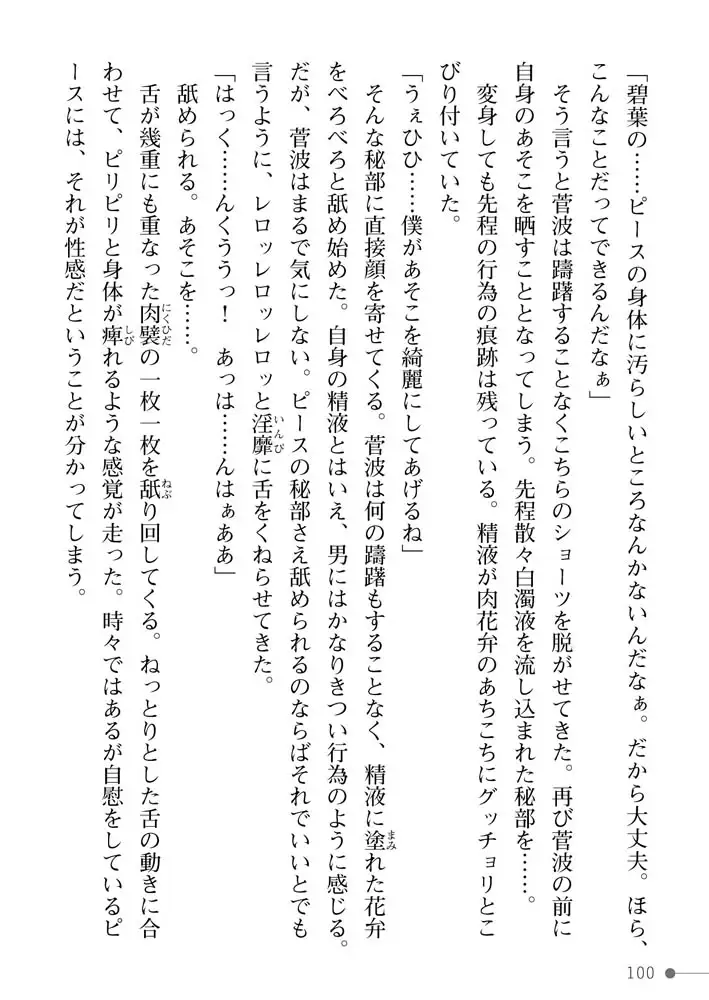 「碧葉の……ピースの身体に汚らしいところなんかないんだなぁ。だから大丈夫。ほら、
こんなことだってできるんだなぁ」
そう言うと菅波は躊躇することなくこちらのショーツを脱がせてきた。再び菅波の前に
自身のあそこを晒すこととなってしまう。先程散々白濁液を流し込まれた秘部を……。
変身しても先程の行為の痕跡は残っている。精液が肉花弁のあちこちにグッチョリとこ
びり付いていた。
「うぇひひ……僕があそこを綺麗にしてあげるね」
そんな秘部に直接顔を寄せてくる。菅波は何の躊躇もすることなく、精液に塗れた花弁
をべろべろと舐め始めた。自身の精液とはいえ、男にはかなりきつい行為のように感じる。
だが、菅波はまるで気にしない。ピースの秘部さえ舐められるのならばそれでいいとでも
言うように、レロッレロッレロッと淫靡に舌をくねらせてきた。
「はっく……んくううっ！　あっは……んはぁああ」
舐められる。あそこを……。
舌が幾重にも重なった肉襞の一枚一枚を舐り回してくる。ねっとりとした舌の動きに合
わせて、ピリピリと身体が痺れるような感覚が走った。時々ではあるが自慰をしているピ
ースには、それが性感だということが分かってしまう。
100